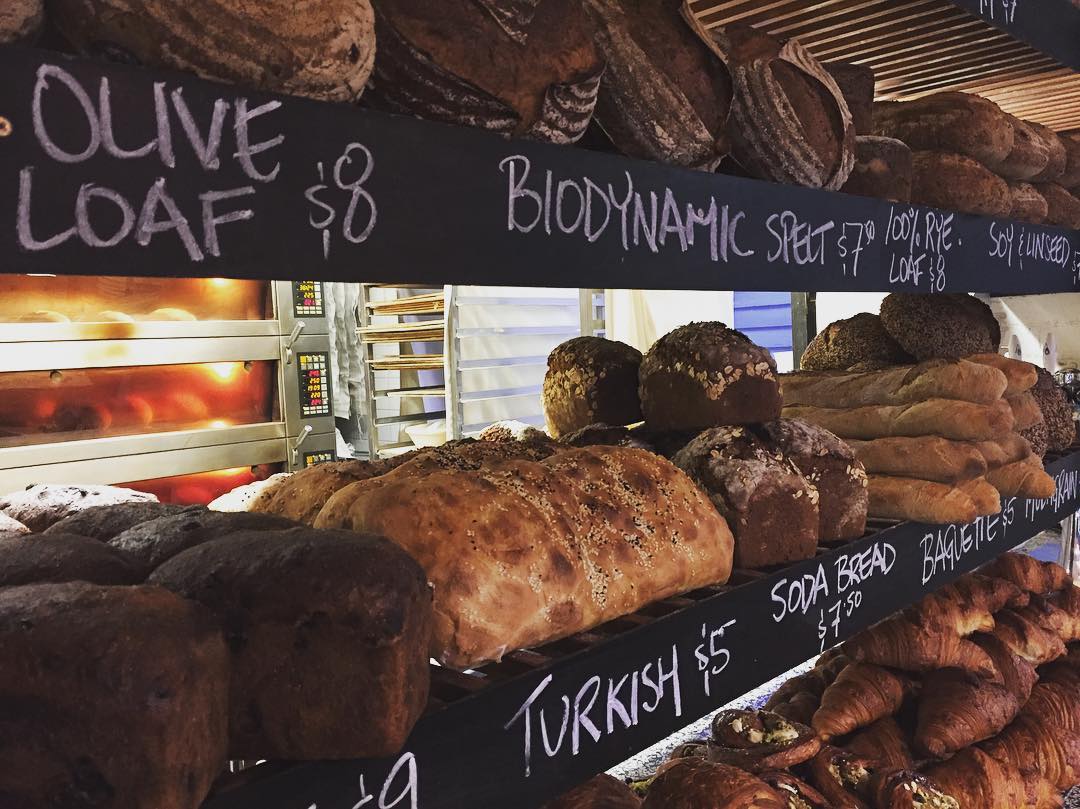 OLIVE
LOAF $8
BIODYNAMIC SPELT $7.80
100% RYE.
LOAF $8
SOY & LINSEED
SODA BREAD
$7.50
BAGUETTE $5
TURKISH $5
$9